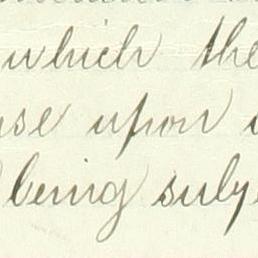 which the
use upon
being subj